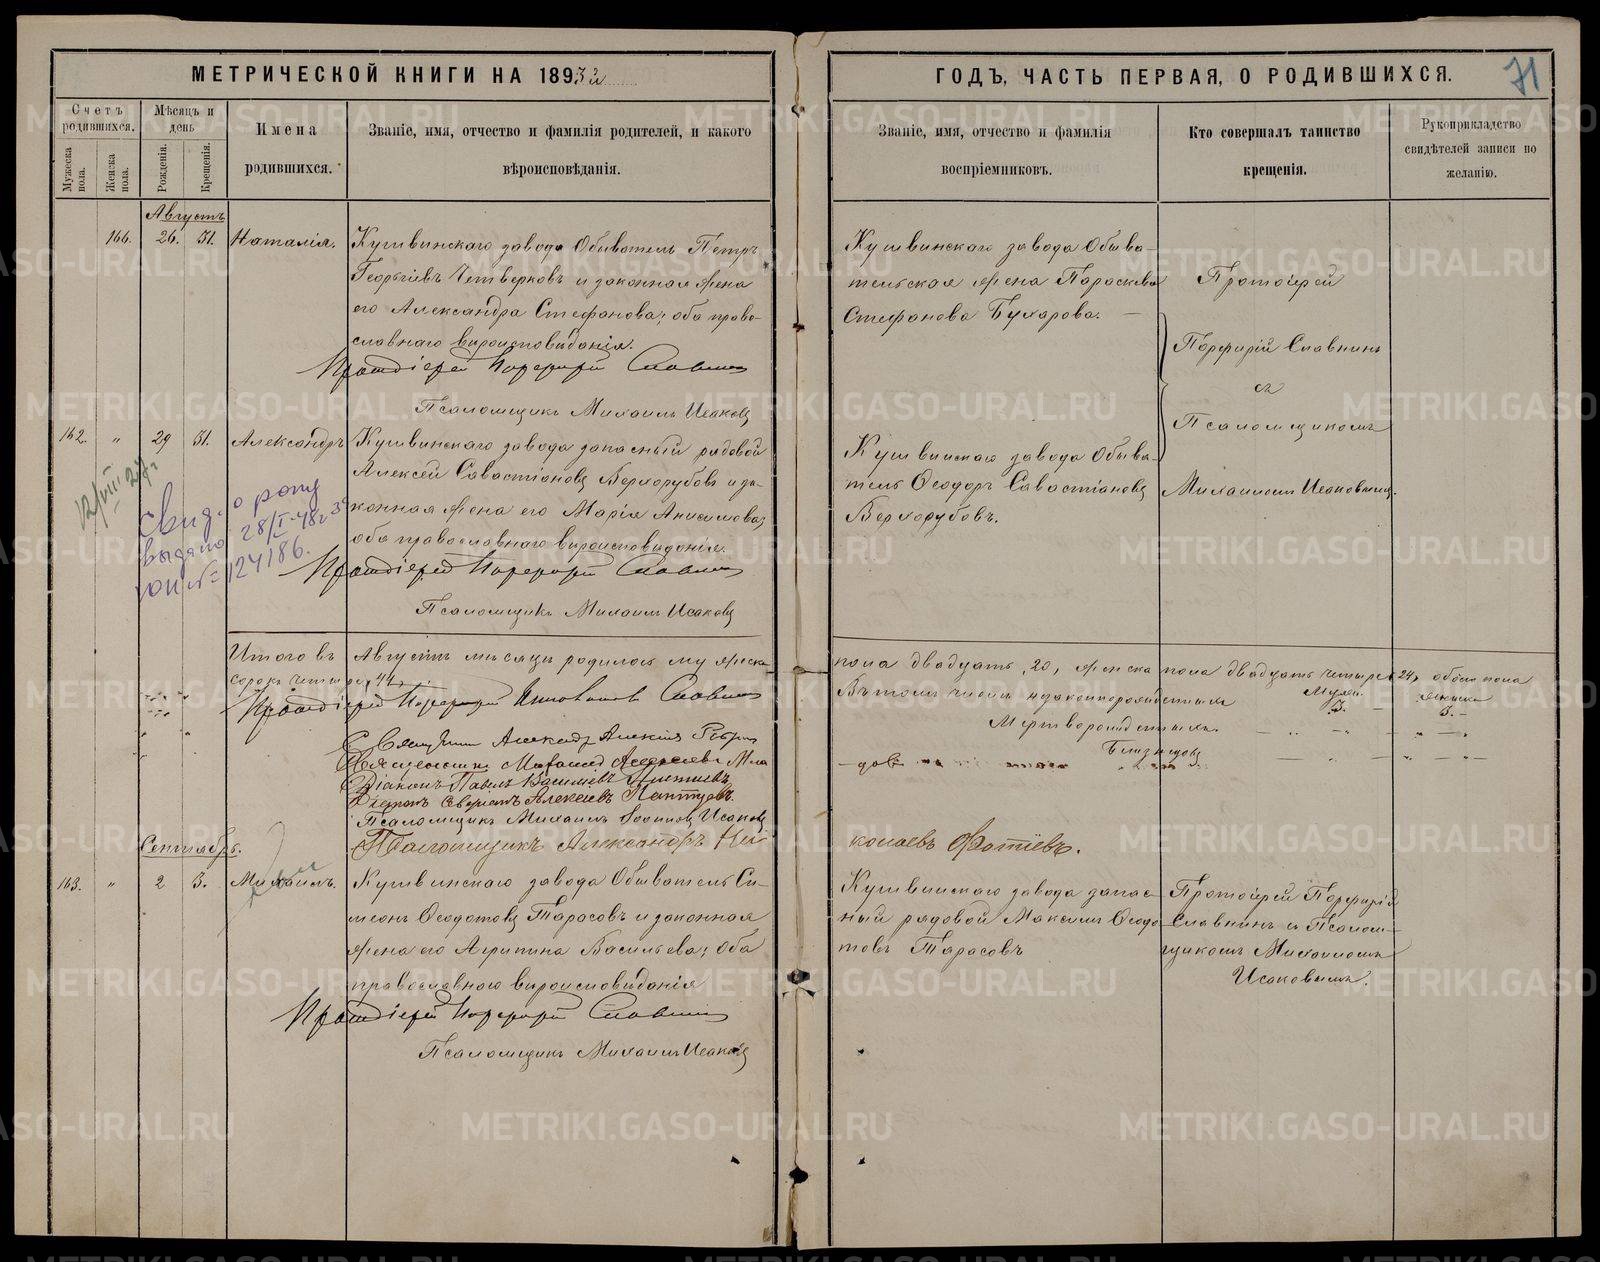 МЕТРИЧЕСКОЙ КНИГИ НА 1893й
ГОДЪ, ЧАСТЬ ПЕРВАЯ, О РОДИВШИХСЯ.
71
Счетъ родившихся.
Мѣсяцъ и день
Имена родившихся.
Званіе, имя, отчество и фамилія родителей, и какого вѣроисповѣданія.
Званіе, имя, отчество и фамилія воспріемниковъ.
Кто совершалъ таинство крещенія.
Рукоприкладство свидѣтелей записи по желанію.
Мужеска пола.
Женска пола.
Рожденія.
Крещенія.
Августъ
166. 26. 31. Наталія.
Кушвинскаго завода Обыватель Петръ
Георгіевъ Четверковъ и законная жена
его Александра Стефанова; оба право-
славнаго вѣроисповѣданія.
Протоіерей Порфирій Славнинъ
Псаломщикъ Михаилъ Исаковъ
Кушвинскаго завода Обыва-
тельская жена Параскева
Стефанова Бухарова.
Протоіерей
Порфирій Славнинъ
съ
Псаломщикомъ
Михаиломъ Исаковымъ.
162. " 29 31. Александръ
Кушвинскаго завода запасный рядовой
Алексей Савастіановъ Верхорубовъ и за-
конная жена его Марія Анисимова;
оба православнаго вѣроисповѣданія.
Протоіерей Порфирій Славнинъ
Псаломщикъ Михаилъ Исаковъ
Кушвинскаго завода Обыва-
тель Ѳеодоръ Савастіановъ
Верхорубовъ.
12/VIII 27 г
Свид. о рожд
выдано 28/I-48г
124186.
Итого въ Августѣ мѣсяцѣ родилось мужеска
пола двадцать, 20, женска пола двадцать четыре 24, обоего пола
сорокъ четыре, 44,
Въ томъ числѣ незаконнорожденныхъ
Муж. 3. – женска 3. –
Мертворожденныхъ
Близнецовъ
Протоіерей Порфирій Славнинъ
Священникъ
Діаконъ Павелъ Василіевъ
Алексіевъ
Псаломщикъ Михаилъ Исаковъ
Псаломщикъ Александръ Ни-
колаевъ Фотіевъ.
Сентябрь.
163. " 2 3. Михаилъ.
Кушвинскаго завода Обыватель Си-
меонъ Ѳеодотовъ Тарасовъ и законная
жена его Агрипина Васильева; Оба
православнаго вѣроисповѣданія
Протоіерей Порфирій Славнинъ
Псаломщикъ Михаилъ Исаковъ
Кушвинскаго завода запас-
ный рядовой Максимъ Ѳеодо-
товъ Тарасовъ
Протоіерей Порфирій
Славнинъ съ Псалом-
щикомъ Михаиломъ
Исаковымъ.
METRIKI.GASO-URAL.RU